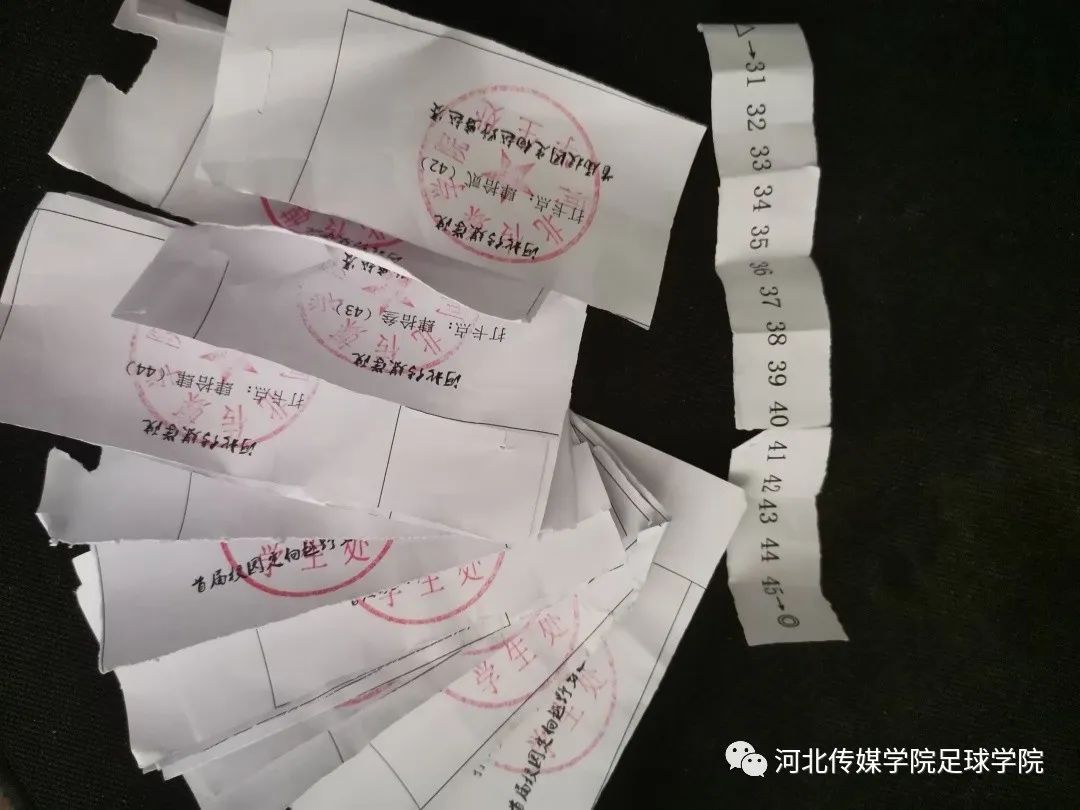 △→31 32 33 34 35 36 37 38 39 40 41 42 43 44 45→◎
河北传媒学院
打卡点：肆拾贰（42）
首届校园定向越野挑战赛
学生处
河北传媒学院
打卡点：肆拾叁（43）
河北传媒学院
打卡点：肆拾肆（44）
首届校园定向越野
学生处
学生处
学生处
首届校园定向越野
学生处
河北传媒学院足球学院